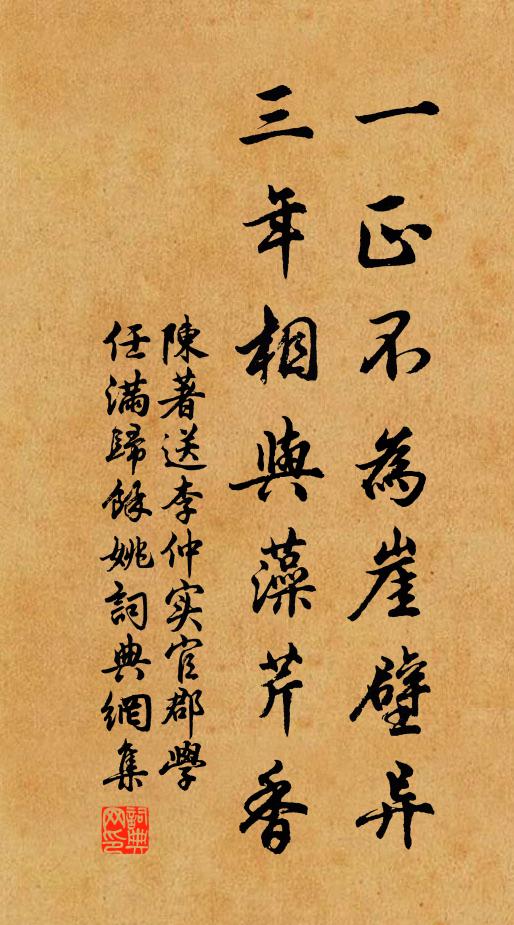 一正不為崖壁异
三年相與藻芹香
陳著送李仲实官郡學
任滿歸餘姚詞典網集
詞典网印